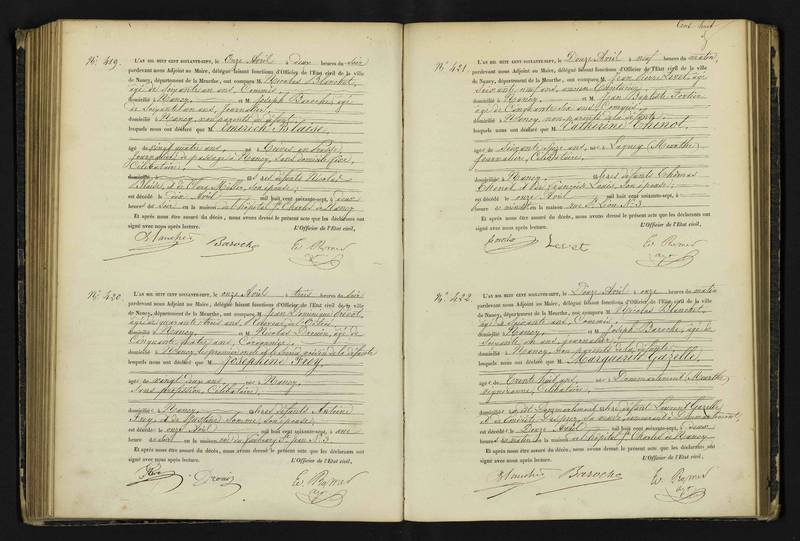 N° 419. L'AN MIL HUIT CENT SOIXANTE-SEPT, le Onze Avril à deux heures du soir
pardevant nous Adjoint au Maire, délégué faisant fonctions d'Officier de l'Etat civil de la ville
de Nancy, département de la Meurthe, ont comparu M. Nicolas Blanchet,
âgé de soixante un ans, Commis,
domicilié à Nancy, et M. Joseph Baroche, âgé
de soixante un ans, journalier,
domicilié à Nancy, non parents du défunt,
lesquels nous ont déclaré que M. Emerich Blaise,
âgé de vingt quatre ans, né à
journalier, de passage à Nancy, sans domicile fixe,
Célibataire,
domicilié à et fils des défunts Nicolas
Blaise, et de son épouse;
est décédé le Dix Avril mil huit cent soixante-sept, à deux
heures du soir en la maison de l'hôpital St Charles de Nancy
Et après nous être assuré du décès, nous avons dressé le présent acte que les déclarants ont
signé avec nous après lecture. L'Officier de l'Etat civil,
Blanchet Baroche
N° 420. L'AN MIL HUIT CENT SOIXANTE-SEPT, le onze Avril à trois heures du soir
pardevant nous Adjoint au Maire, délégué faisant fonctions d'Officier de l'Etat civil de la ville
de Nancy, département de la Meurthe, ont comparu M. Jean Dominique
âgé de quarante trois ans,
domicilié à Nancy, et M. Nicolas Drouin, âgé de
Cinquante quatre ans,
domicilié à Nancy, le premier oncle et le second voisin de la défunte
lesquels nous ont déclaré que M. Joséphine Frey,
âgée de vingt deux ans, née à Nancy,
sans profession, Célibataire,
domiciliée à Nancy, fille des défunts Antoine
Frey, et de son épouse;
est décédée le onze Avril mil huit cent soixante-sept, à une
heure du soir en la maison rue du faubourg St jean N° 3
Et après nous être assuré du décès, nous avons dressé le présent acte que les déclarants ont
signé avec nous après lecture. L'Officier de l'Etat civil,
Drouin
Cent huit
N° 421. L'AN MIL HUIT CENT SOIXANTE-SEPT, le Douze Avril à neuf heures du matin,
pardevant nous Adjoint au Maire, délégué faisant fonctions d'Officier de l'Etat civil de la ville
de Nancy, département de la Meurthe, ont comparu M. Jean Pierre Levet, âgé
soixante neuf ans, ancien
domicilié à Nancy, et M. Jean Baptiste
âgé de Cinquante six ans,
domicilié à Nancy, non parents de la défunte,
lesquels nous ont déclaré que M. Catherine Thenot,
âgée de soixante seize ans, née à Lagney (Meurthe)
journalière, Célibataire,
domiciliée à Nancy, fille des défunts Thomas
Thenot, et de Françoise Louis, son épouse;
est décédée le onze Avril mil huit cent soixante-sept, à
heures du en la maison rue St Léon N° 3
Et après nous être assuré du décès, nous avons dressé le présent acte que les déclarants ont
signé avec nous après lecture. L'Officier de l'Etat civil,
Levet
N° 422. L'AN MIL HUIT CENT SOIXANTE-SEPT, le Douze Avril à onze heures du matin
pardevant nous Adjoint au Maire, délégué faisant fonctions d'Officier de l'Etat civil de la ville
de Nancy, département de la Meurthe, ont comparu M. Nicolas Blanchet,
âgé de soixante un ans, Commis,
domicilié à Nancy, et M. Joseph Baroche, âgé de
soixante un ans, journalier,
domicilié à Nancy, non parents de la défunte,
lesquels nous ont déclaré que M. Marguerite Gazelle,
âgée de Trente huit ans, née à Dommartemont (Meurthe)
vigneronne, Célibataire,
domiciliée à Dommartemont, fille de défunt Laurent Gazelle,
est décédée le Douze Avril mil huit cent soixante-sept, à deux
heures du matin en la maison de l'hôpital St Charles de Nancy
Et après nous être assuré du décès, nous avons dressé le présent acte que les déclarants ont
signé avec nous après lecture. L'Officier de l'Etat civil,
Blanchet Baroche